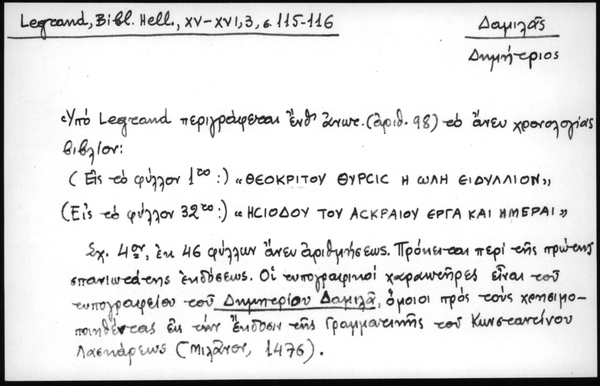 Legrand, Bibl. Hell., XV-XVI, 3, σ. 115-116
Δαμιλᾶς
Δημήτριος
«Ὑπό Legrand περιγράφεται ἔνθ' ἀνωτ. (ἀριθ. 98) τό ἄνευ χρονολογίας
βιβλίον:
(Εἰς τό φύλλον 1ον:) «ΘΕΟΚΡΙΤΟΥ ΘΥΡCΙC Η ΩΔΗ ΕΙΔΥΛΛΙΟΝ»
(Εἰς τό φύλλον 32ον:) «ΗCΙΟΔΟΥ ΤΟΥ ΑCΚΡΑΙΟΥ ΕΡΓΑ ΚΑΙ ΗΜΕΡΑΙ»
Σχ. 4ον, ἐκ 46 φύλλων ἄνευ ἀριθμήσεως. Πρόκειται περί τῆς πρώτης
σπανιωτάτης ἐκδόσεως. Οἱ τυπογραφικοί χαρακτῆρες εἶναι τοῦ
τυπογραφείου τοῦ Δημητρίου Δαμιλᾶ, ὅμοιοι πρός τούς χρησιμο-
ποιηθέντας εἰς τήν ἔκδοσιν τῆς Γραμματικῆς τοῦ Κωνσταντίνου
Λασκάρεως (Μιλᾶνον, 1476).